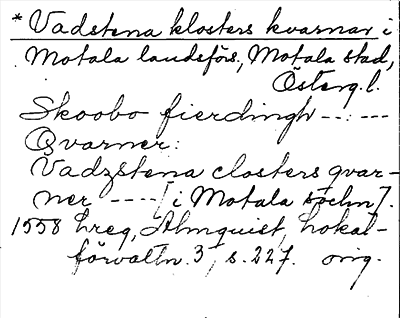 * Vadstena klosters kvarnar i
Motala landsförs., Motala stad,
Österg. l.
Skoobo fierdingh --: ---
Qvarner:
Vadzstena closters qvar-
ner ---- [i Motala sochn].
1558 Lreg, Almquist, Lokal-
förvaltn. 3, s. 227. orig.